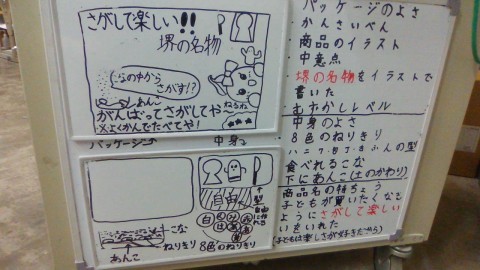 さがして楽しい!!
堺の名物
この中から
さがす!?
あんこ
がんばってさがしてや
ねるね
※よくかんでたべてや!
パッケージ
中身
自由
白
こな
ねりきり
8色のねりきり
あんこ
パッケージのよさ
・かんさいべん
・商品のイラスト
・中意点
・堺の名物をイラストで
書いた
・むずかしレベル
中身のよさ
8色のねりきり
食べれるこな
下にあんこ(土のかわり)
商品名の特ちょう
子どもが買いたくなる
ようにさがして楽しい
をいれた
(子どもは楽しさが好きだから)